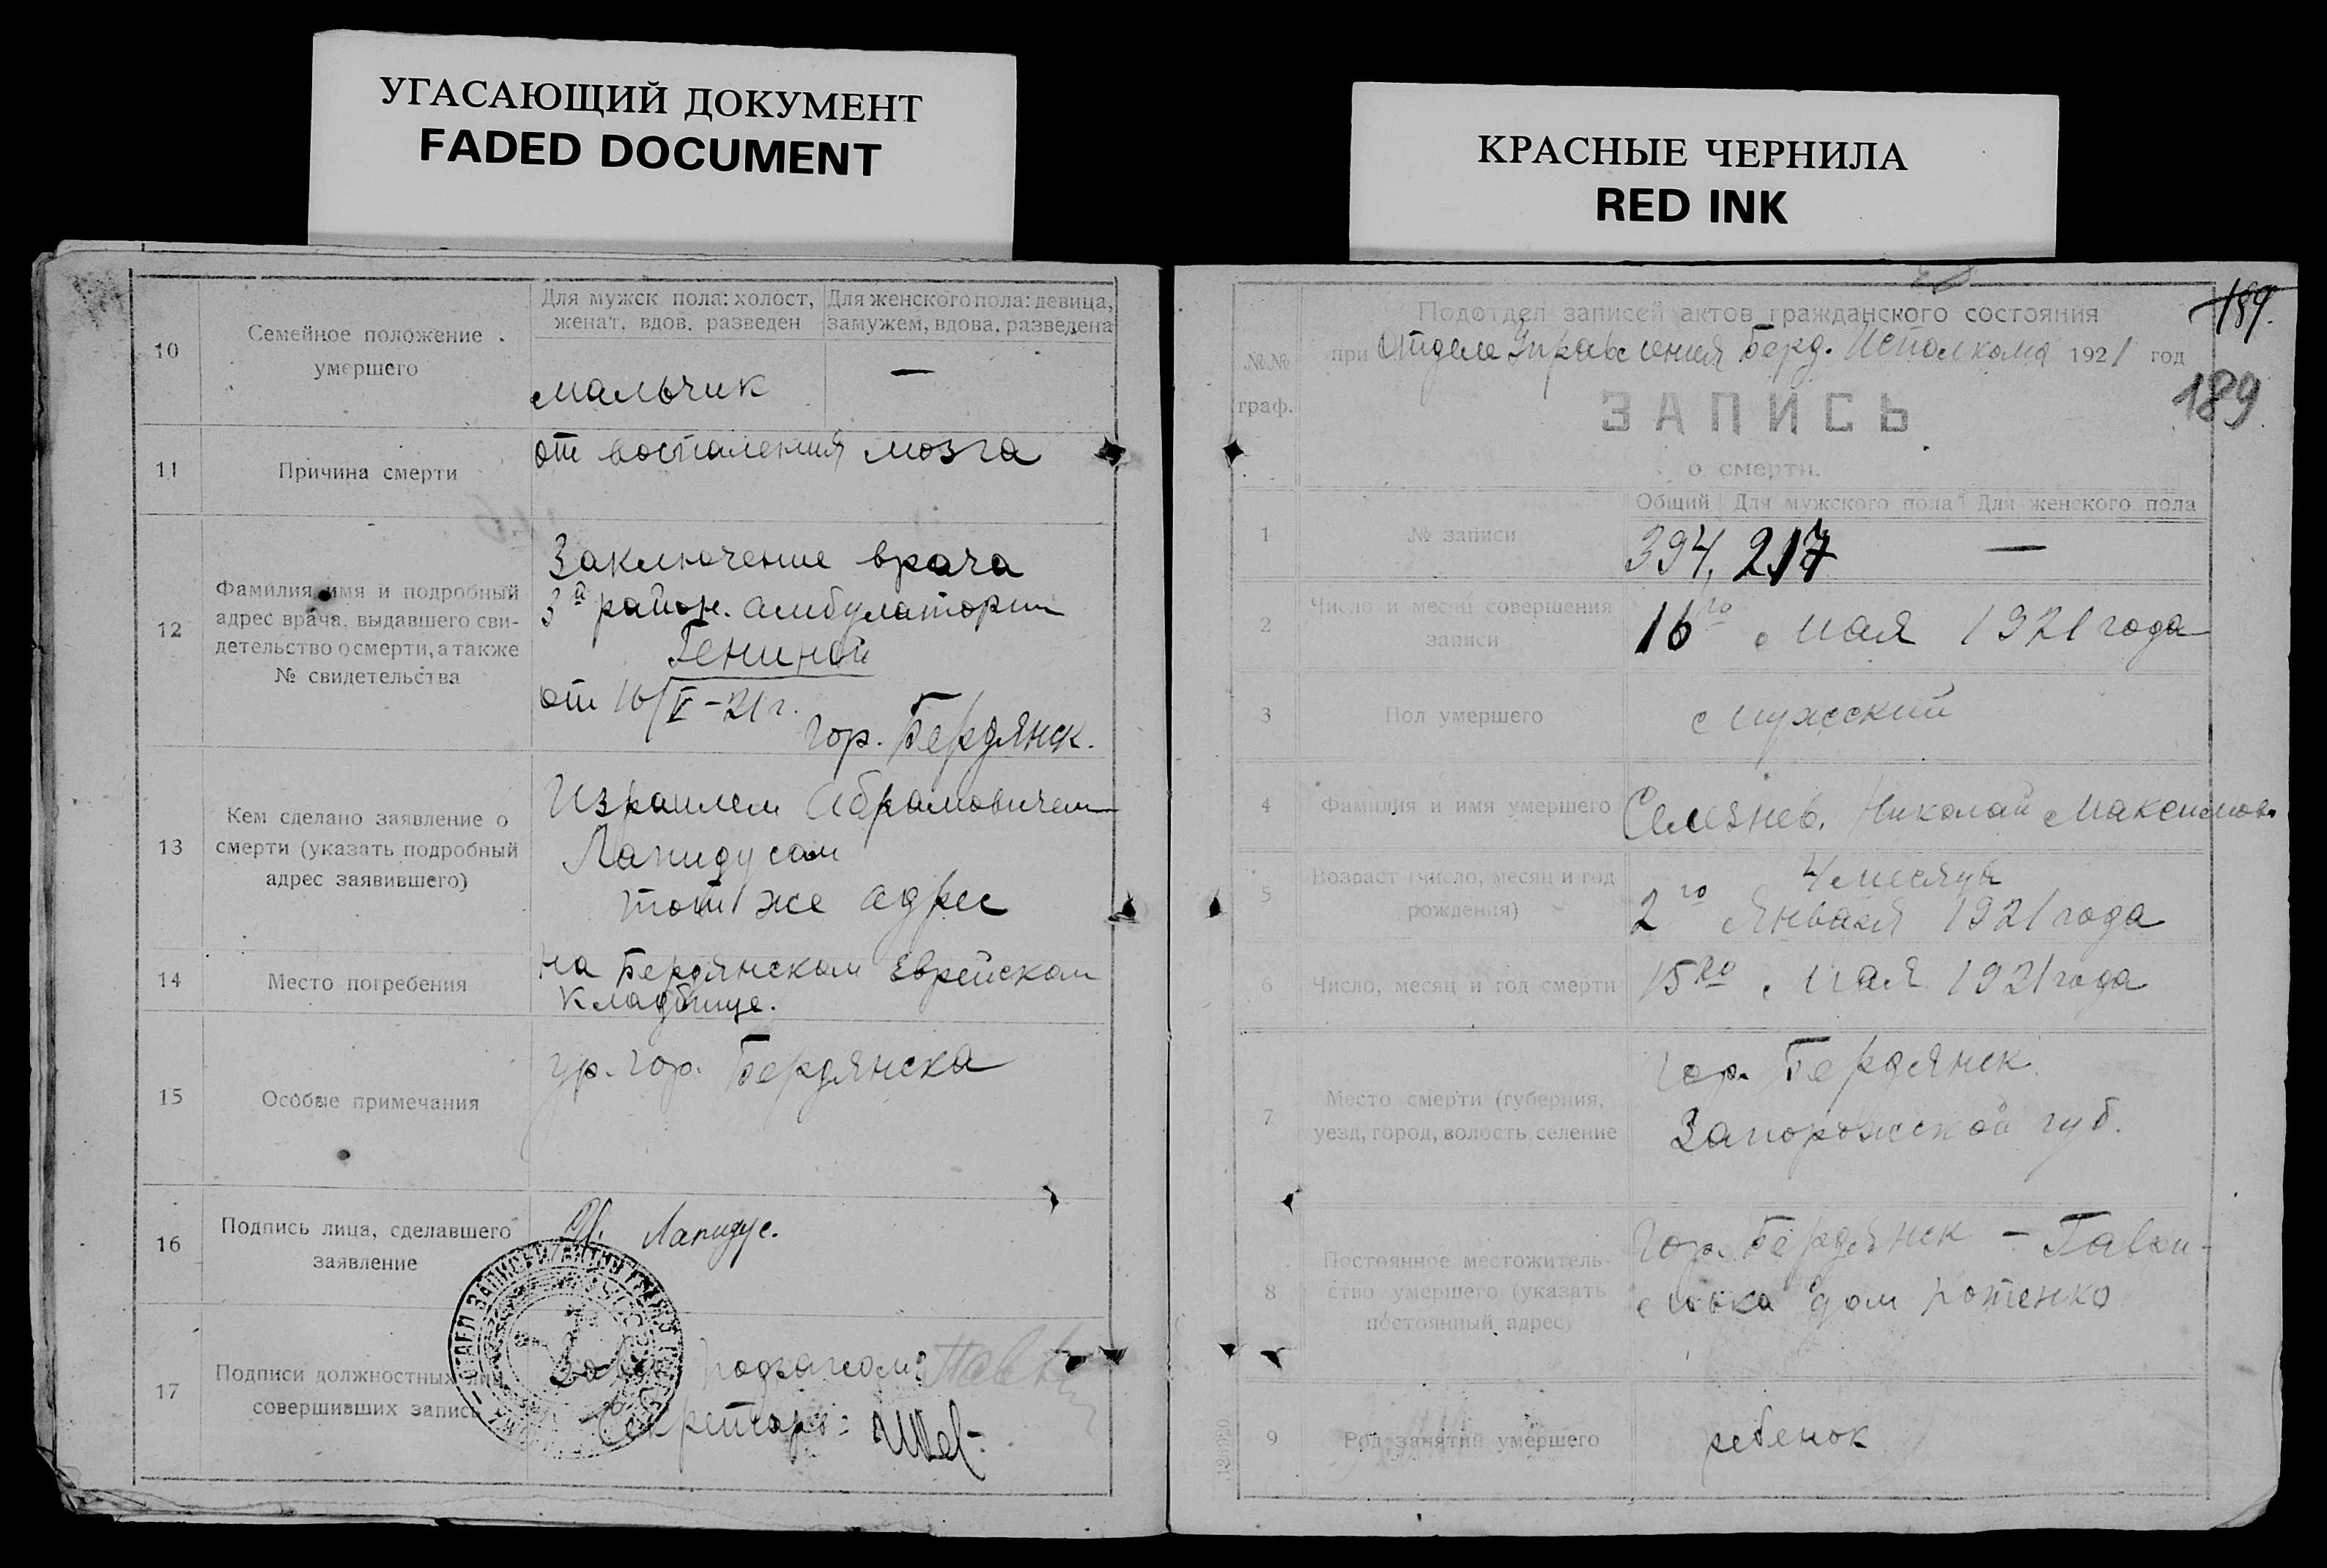 УГАСАЮЩИЙ ДОКУМЕНТ
FADED DOCUMENT
КРАСНЫЕ ЧЕРНИЛА
RED INK
10
Семейное положение
умершего
Для мужск пола: холост,
женат, вдов, разведен
Для женского пола: девица,
замужем, вдова, разведена
мальчик
—
11
Причина смерти
от воспаления мозга
12
Фамилия имя и подробный
адрес врача, выдавшего сви-
детельство о смерти, а также
№ свидетельства
Заключение врача
3й район. амбулатории
Гениной
от 16/V-21 г.
гор. Бердянск.
13
Кем сделано заявление о
смерти (указать подробный
адрес заявившего)
Израилем Абрамовичем
Лапидусом
тот же адрес
14
Место погребения
на Бердянском Еврейском
кладбище.
15
Особые примечания
ур. гор. Бердянска
16
Подпись лица, сделавшего
заявление
Лапидус.
17
Подписи должностных лиц
совершивших запись
Секретарь:
189.
189
№№
граф.
Подотдел записей актов гражданского состояния
при Отделе Управления Берд. Исполкома 1921 год
ЗАПИСЬ
о смерти.
1
№ записи
Общий
Для мужского пола
Для женского пола
394, 217 —
2
Число и месяц совершения
записи
16го мая 1921 года
3
Пол умершего
мужский
4
Фамилия и имя умершего
Селезнев, Николай Максимов.
5
Возраст (число, месяц и год
рождения)
4 месяца
2го Января 1921 года
6
Число, месяц и год смерти
15го мая 1921 года
7
Место смерти (губерния,
уезд, город, волость, селение
Гор. Бердянск
Запорожской губ.
8
Постоянное местожитель-
ство умершего (указать
постоянный адрес)
Гор. Бердянск –
дом
9
Род занятий умершего
ребенок